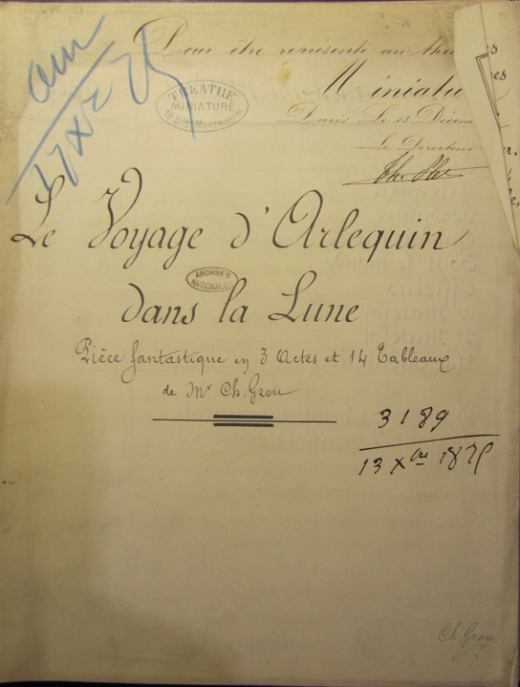 Pour être représenté au thé
Miniatu
Paris Le 13 Décem
Le Directeur
THÉATRE
MINIATURE
MONTMARTRE
Le Voyage d'Arlequin
dans la Lune
ARCHIVES
NATIONALES
Pièce fantastique en 3 Actes et 14 Tableaux
de Mr Ch. Grou
3189
13 Xbre 187
Ch. Grou